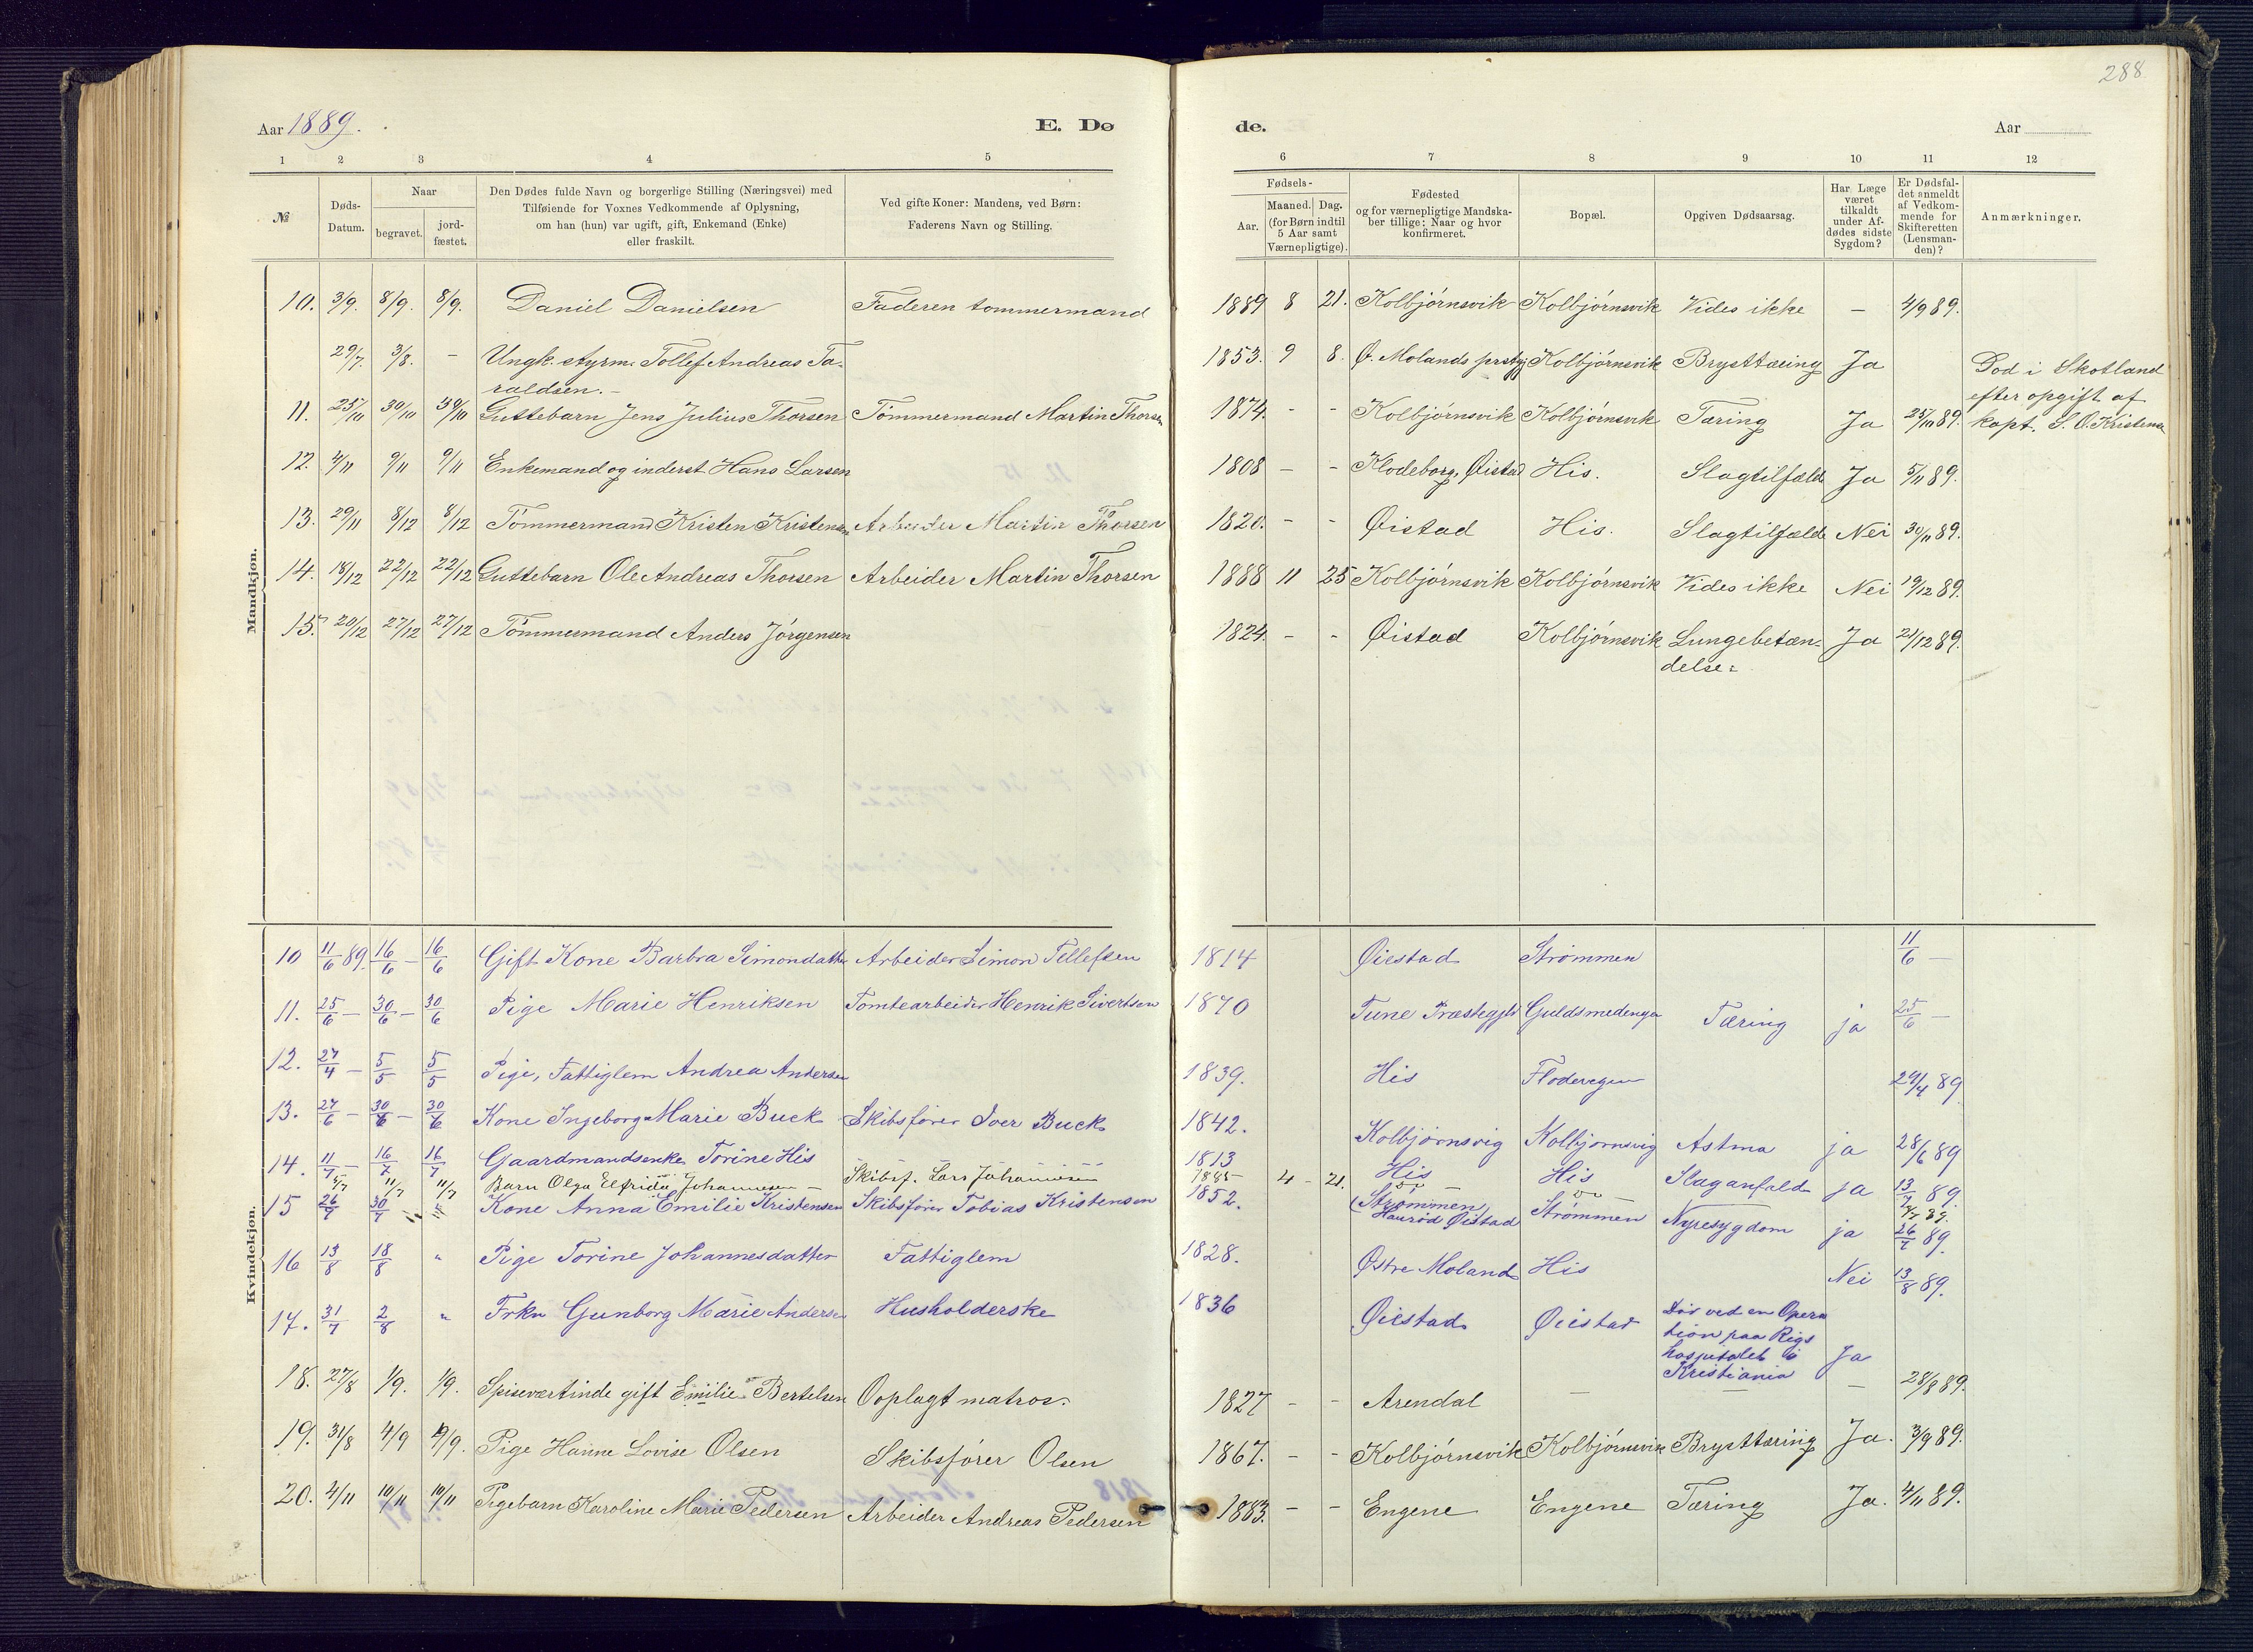 288
Aar 1889.
E. Dø
de.
Aar
1 2 3 4 5 6 7 8 9 10 11 12
№
Døds-
Datum.
Naar
begravet.
jord-
fæstet.
Den Dødes fulde Navn og borgerlige Stilling (Næringsvei) med
Tilføiende for Voxnes Vedkommende af Oplysning,
om han (hun) var ugift, gift, Enkemand (Enke)
eller fraskilt.
Ved gifte Koner: Mandens, ved Børn:
Faderens Navn og Stilling.
Fødsels-
Aar.
Maaned. Dag.
(for Børn indtil
5 Aar samt
Værnepligtige).
Fødested
og for værnepligtige Mandska-
ber tillige: Naar og hvor
konfirmeret.
Bopæl.
Opgiven Dødsaarsag.
Har Læge
været
tilkaldt
under Af-
dødes sidste
Sygdom?
Er Dødsfal-
det anmeldt
af Vedkom-
mende for
Skifteretten
(Lensman-
den)?
Anmærkninger.
Mandkjøn.
10. 3/9. 8/9. 8/9. Daniel Danielsen Faderen tømmermand 1889 8 21. Kolbjörnsvik Kolbjörnsvik Vides ikke – 4/9 89.
29/7. 3/8. – Ungk. styrm. Tollef Andreas Ta- 1853. 9 8. Ø. Molands prstgj Kolbjörnsvik Brysttæring Ja
raldsen. –
Død i Skotland
efter opgift af
kapt. S. O. Kristensen
11. 25/10 30/10 30/10 Guttebarn Jens Julius Thorsen Tømmermand Martin Thorsen 1874. - - Kolbjörnsvik Kolbjörnsvik Tæring Ja 25/10 89.
12. 4/11 9/11 9/11 Enkemand og inderst Hans Larsen 1808 – - Klodeborg, Øistad His. Slagtilfælde Ja 5/11 89.
13. 29/11 8/12 8/12 Tømmermand Kristen Kristensen Arbeider Martin Thorsen 1820. - - Øistad His. Slagtilfælde Nei 30/11 89.
14. 18/12 22/12 22/12 Guttebarn Ole Andreas Thorsen Arbeider Martin Thorsen 1888 11 25 Kolbjörnsvik Kolbjörnsvik Vides ikke Nei 19/12 89.
15. 20/12 27/12 27/12 Tømmermand Anders Jörgensen 1824. - - Øistad Kolbjörnsvik Lungebetæn- Ja 21/12 89.
delse-
Kvindekjøn.
10 11/6 89. 16/6 – 16/6 Gift Kone Barbra Simondatter Arbeider Simon Tellefsen 1814 Øiestad Strømmen 11/6 –
11. 25/6 – 30/6 – 30/6 Pige Marie Henriksen Tomtearbeider Henrik Sivertsen 1870 Tune Præstegjld Guldsmedengen Tæring ja 25/6 –
12. 27/4 – 5/5 5/5 Pige, Fattiglem Andrea Andersen 1839. His 29/4 89
13. 27/6 – 30/6 – 30/6 Kone Ingeborg Marie Buck Skibsfører Iver Buck 1842. Kolbjørnsvig Kolbjørnsvig Astma ja 28/6 89
14. 11/7 – 16/7 16/7 Gaardmandsenke Torine His 1813 His His Slaganfald ja 13/7 89.
11/7 11/7 Barn Olga Elfrida Johannesen – Skibsf. Lars Johannesen 1885 4 – 21.
15 26/7 30/7 – Kone Anna Emilie Kristensen Skibsfører Tobias Kristensen 1852. (Strømmen Strømmen Nyresygdom ja 26/7 89.
Øistad
16 13/8 18/8 " Pige Torine Johannesdatter Fattiglem 1828. Østre Moland His Nei 13/8 89.
17. 31/7 2/8 " Frkn Gunborg Marie Andersen Husholderske 1836 Øiestad Øiestad Døv ved en Opera
tion paa Rigs
hospitalet i Ja
Kristiania
18. 27/8 1/9. 1/9. Spiseværtinde gift Emilie Bertelsen Ooplagt matros. 1827 - - Arendal – – – 28/8 89.
19. 31/8 4/9 4/9. Pige Hanne Lovise Olsen Skibsfører Olsen 1867. - - Kolbjörnsvik Kolbjörnsvik Brysttæring Ja. 3/9 89.
20. 4/11 10/11 10/11 Pigebarn Karoline Marie Pedersen Arbeider Andreas Pedersen 1883. - - Engene Engene Tæring Ja. 4/11 89.